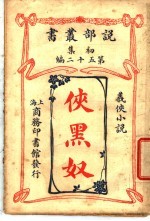 說部叢書
初集
第五十二編
義俠小說
俠黑奴
上海
商務印書館發行